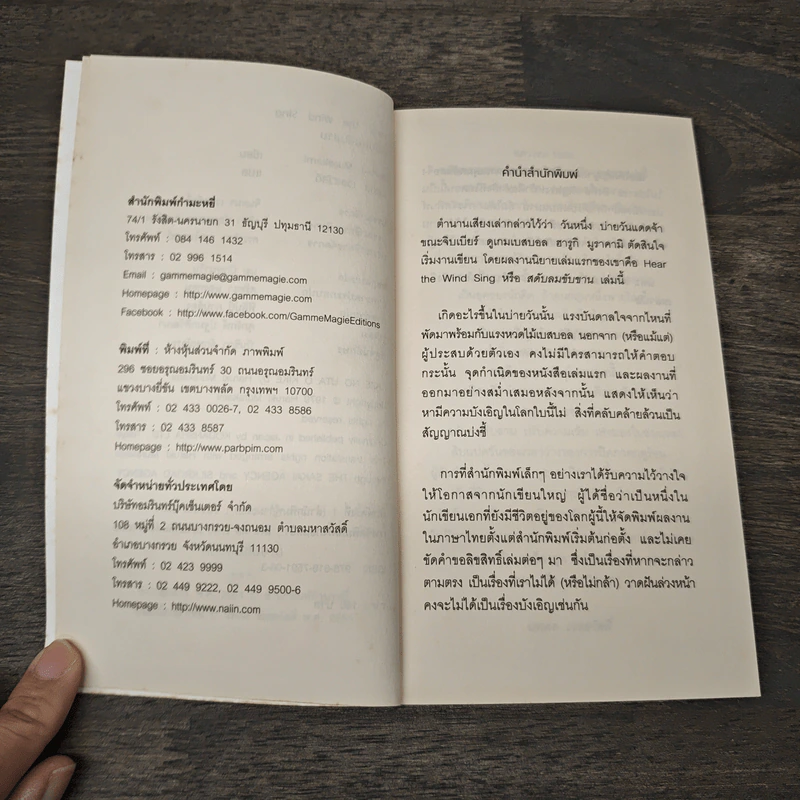 สำนักพิมพ์กำมะหยี่
74/1 รังสิต-นครนายก 31 ธัญบุรี ปทุมธานี 12130
โทรศัพท์ : 084 146 1432
โทรสาร : 02 996 1514
Email : gammemagie@gammemagie.com
Homepage : http://www.gammemagie.com
Facebook : http://www.facebook.com/GammeMagieEditions
พิมพ์ที่ : ห้างหุ้นส่วนจำกัด ภาพพิมพ์
296 ซอยอรุณอมรินทร์ 30 ถนนอรุณอมรินทร์
แขวงบางยี่ขัน เขตบางพลัด กรุงเทพฯ 10700
โทรศัพท์ : 02 433 0026-7, 02 433 8586
โทรสาร : 02 433 8587
Homepage : http://www.parbpim.com
จัดจำหน่ายทั่วประเทศโดย
บริษัทอมรินทร์บุ๊คเซ็นเตอร์ จำกัด
108 หมู่ที่ 2 ถนนบางกรวย-จงถนอม ตำบลมหาสวัสดิ์
อำเภอบางกรวย จังหวัดนนทบุรี 11130
โทรศัพท์ : 02 423 9999
โทรสาร : 02 449 9222, 02 449 9500-6
Homepage : http://www.naiin.com
คำนำสำนักพิมพ์
ตำนานเสียงเล่ากล่าวไว้ว่า วันหนึ่ง บ่ายวันแดดจ้า
ขณะจิบเบียร์ ดูเกมเบสบอล ฮารูกิ มูราคามิ ตัดสินใจ
เริ่มงานเขียน โดยผลงานนิยายเล่มแรกของเขาคือ Hear
the Wind Sing หรือ สดับลมขับขาน เล่มนี้
เกิดอะไรขึ้นในบ่ายวันนั้น แรงบันดาลใจจากไหนที่
พัดมาพร้อมกับแรงหวดไม้เบสบอล นอกจาก (หรือแม้แต่)
ผู้ประสบด้วยตัวเอง คงไม่มีใครสามารถให้คำตอบ
กระนั้น จุดกำเนิดของหนังสือเล่มแรก และผลงานที่
ออกมาอย่างสม่ำเสมอหลังจากนั้น แสดงให้เห็นว่า
หามีความบังเอิญในโลกใบนี้ไม่ สิ่งที่คลับคล้ายล้วนเป็น
สัญญาณบ่งชี้
การที่สำนักพิมพ์เล็กๆ อย่างเราได้รับความไว้วางใจ
ให้โอกาสจากนักเขียนใหญ่ ผู้ได้ชื่อว่าเป็นหนึ่งใน
นักเขียนเอกที่ยังมีชีวิตอยู่ของโลกผู้นี้ให้จัดพิมพ์ผลงาน
ในภาษาไทยตั้งแต่สำนักพิมพ์เริ่มต้นก่อตั้ง และไม่เคย
ขัดคำขอลิขสิทธิ์เล่มต่อๆ มา ซึ่งเป็นเรื่องที่หากจะกล่าว
ตามตรง เป็นเรื่องที่เราไม่ได้ (หรือไม่กล้า) วาดฝันล่วงหน้า
คงจะไม่ได้เป็นเรื่องบังเอิญเช่นกัน